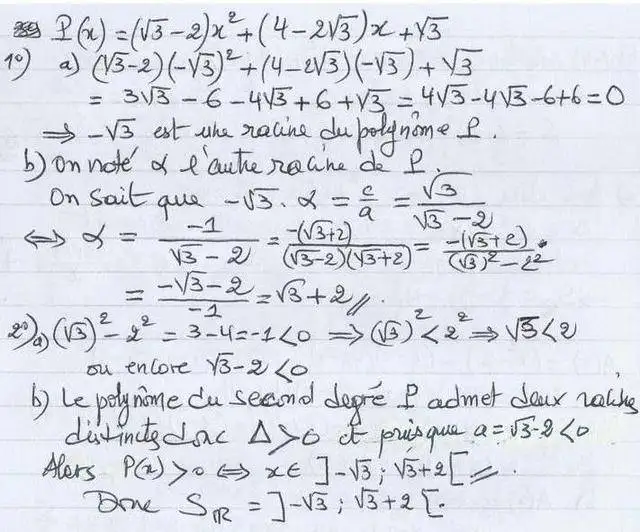 P(x) = (√3-2)x² + (4-2√3)x + √3
1°) a) (√3-2)(-√3)² + (4-2√3)(-√3) + √3
= 3√3 - 6 - 4√3 + 6 + √3 = 4√3 - 4√3 - 6 + 6 = 0
⇒ -√3 est une racine du polynôme P.
b) On note α l'autre racine de P.
On sait que -√3 . α = c/a = √3/(√3-2)
⇔ α = -1/(√3-2) = -(√3+2)/((√3-2)(√3+2)) = -(√3+2)/((√3)²-2²).
= (-√3-2)/-1 = √3+2 //.
2°) a) (√3)² - 2² = 3-4 = -1 < 0 ⇒ (√3)² < 2² ⇒ √3 < 2
ou encore √3-2 < 0
b) Le polynôme du second degré P admet deux racines
distincts donc Δ > 0 et puisque a = √3-2 < 0
Alors P(x) > 0 ⇔ x ∈ ]-√3 ; √3+2[ //.
Donc S_ℝ = ]-√3 ; √3+2[.